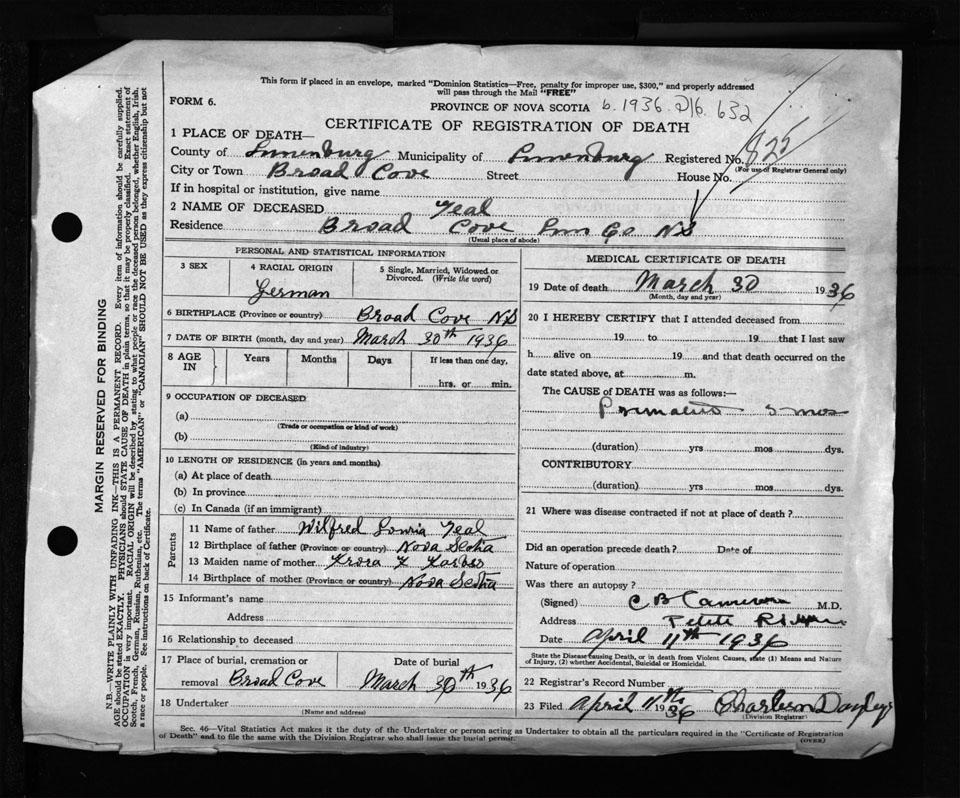 This form if placed in an envelope, marked "Dominion Statistics—Free, penalty for improper use, $300," and properly addressed
will pass through the Mail "FREE"
FORM 6.
PROVINCE OF NOVA SCOTIA b. 1936 632
CERTIFICATE OF REGISTRATION OF DEATH
1 PLACE OF DEATH—
County of Lunenburg Municipality of Lunenburg Registered No. 825
(For use of Registrar General only)
City or Town Broad Cove Street House No.
If in hospital or institution, give name
2 NAME OF DECEASED Teal
Residence Broad Cove Lun Co NS
(Usual place of abode)
PERSONAL AND STATISTICAL INFORMATION
3 SEX
4 RACIAL ORIGIN
German
5 Single, Married, Widowed or
Divorced. (Write the word)
6 BIRTHPLACE (Province or country) Broad Cove NS
7 DATE OF BIRTH (month, day and year) March 30th 1936
8 AGE
IN
Years Months Days If less than one day,
hrs. or min.
9 OCCUPATION OF DECEASED
(a)
(Trade or occupation or kind of work)
(b)
(Kind of industry)
10 LENGTH OF RESIDENCE (in years and months)
(a) At place of death
(b) In province
(c) In Canada (if an immigrant)
Parents
11 Name of father Wilfred Teal
12 Birthplace of father (Province or country) Nova Scotia
13 Maiden name of mother
14 Birthplace of mother (Province or country) Nova Scotia
15 Informant's name
Address
16 Relationship to deceased
17 Place of burial, cremation or
removal Broad Cove
Date of burial
March 30th 1936
18 Undertaker
(Name and address)
MEDICAL CERTIFICATE OF DEATH
19 Date of death March 30 1936
(Month, day and year)
20 I HEREBY CERTIFY that I attended deceased from
19 to 19 that I last saw
h alive on 19 and that death occurred on the
date stated above, at m.
The CAUSE OF DEATH was as follows:—
mos
(duration) yrs mos dys.
CONTRIBUTORY
(duration) yrs mos dys.
21 Where was disease contracted if not at place of death?
Did an operation precede death? Date of
Nature of operation
Was there an autopsy?
(Signed) C B Cameron M.D.
Address Petite Riviere
Date April 11th 1936
State the Disease causing Death, or in death from Violent Causes, state (1) Means and Nature
of Injury, (2) whether Accidental, Suicidal or Homicidal.
22 Registrar's Record Number
23 Filed April 11th 1936
(Division Registrar)
Sec. 46—Vital Statistics Act makes it the duty of the Undertaker or person acting as Undertaker to obtain all the particulars required in the "Certificate of Registration
of Death" and to file the same with the Division Registrar who shall issue the burial permit.
(OVER)
MARGIN RESERVED FOR BINDING
N.B.—WRITE PLAINLY WITH UNFADING INK—THIS IS A PERMANENT RECORD. Every item of information should be carefully supplied.
AGE should be stated EXACTLY. PHYSICIANS should STATE CAUSE OF DEATH in plain terms, so that it may be properly classified. Exact statement of
OCCUPATION is very important. RACIAL ORIGIN will be described by stating to what people or race the deceased person belonged, whether English, Irish,
Scotch, French, German, Russian, Ruthenian, etc. The terms "AMERICAN" or "CANADIAN" SHOULD NOT BE USED as they express citizenship but not
a race or people. See instructions on back of Certificate.